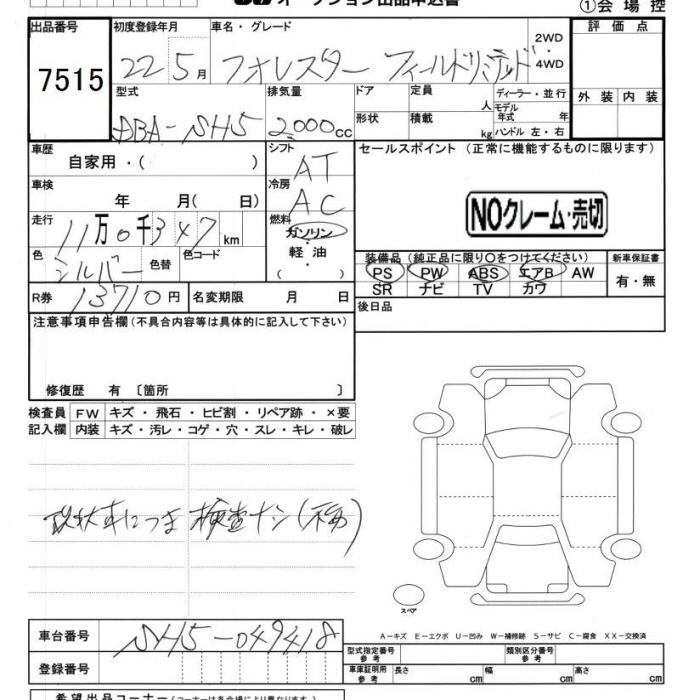 オークション出品申込書
①会場控
出品番号 初度登録年月 車名・グレード 評価点
7515 22 5月 フォレスター フィールドリミテッド 2WD 4WD
型式 排気量 ドア 定員 人 ディーラー・並行 外装 内装
DBA-SH5 2000cc 形状 積載 kg モデル年式 年 ハンドル 左・右
車歴 シフト セールスポイント (正常に機能するものに限ります)
自家用・( ) AT
車検 冷房
年 月( 日) AC NOクレーム・売切
走行 燃料
11万0千347km ガソリン
色 色替 色コード 軽油 装備品 (純正品に限り○をつけてください) 新車保証書
シルバー ・( ) PS PW ABS エアB AW 有・無
SR ナビ TV カワ
R券 13710円 名変期限 月 日 後日品
注意事項申告欄(不具合内容等は具体的に記入して下さい)
修復歴 有 〔箇所 〕
検査員 FW キズ・飛石・ヒビ割・リペア跡・×要
記入欄 内装 キズ・汚レ・コゲ・穴・スレ・キレ・破レ
現状車につき 検査ナシ(不動)
スペア
A-キズ E-エクボ U-凹み W-補修跡 S-サビ C-腐食 XX-交換済
車台番号 SH5-049418 型式指定番号 参考 類別区分番号 参考
登録番号 車庫証明用 参考 長さ cm 幅 cm 高さ cm
希望出品コーナー